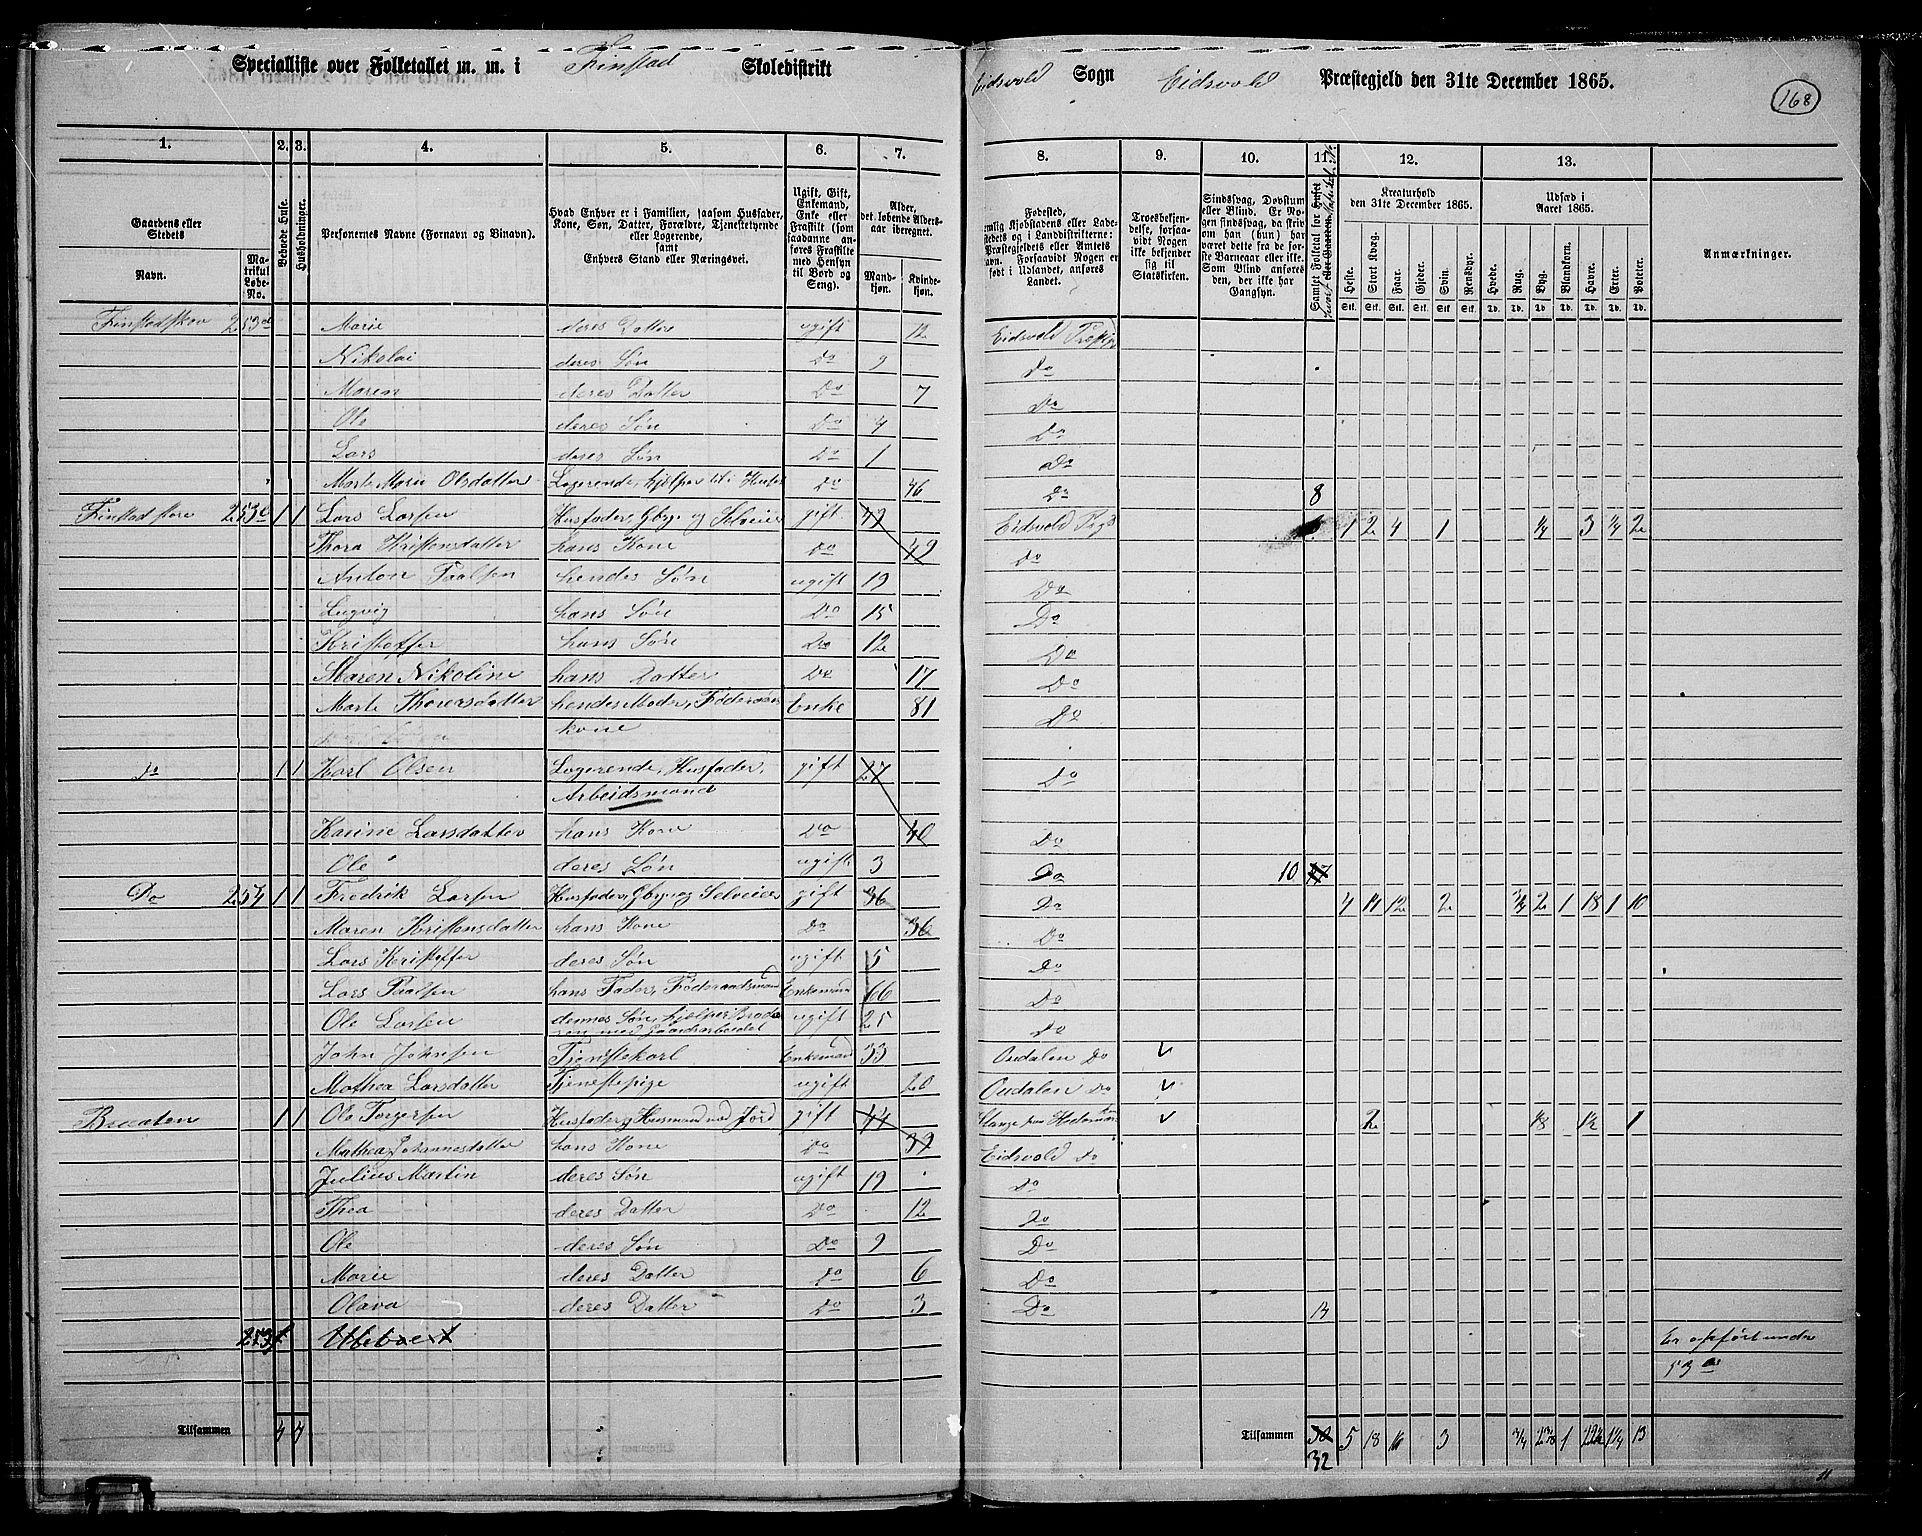 Specialliste over Folketallet m. m. i Finstad Skoledistrikt Eidsvold Sogn Eidsvold Præstegjeld den 31te December 1865.
168
1. 2. 3. 4. 5. 6. 7. 8. 9. 10. 11. 12. 13.
Gaardens eller Stedets
Navn.
Matrikul Løbe-No.
Beboede Huse.
Husholdninger.
Personernes Navne (Fornavn og Binavn).
Hvad Enhver er i Familien, saasom Husfader, Kone, Søn, Datter, Forældre, Tjenestetyende eller Logerende, samt Enhvers Stand eller Næringsvei.
Ugift, Gift, Enkemand, Enke eller Fraskilt (som saadanne anføres Fraskilte med Hensyn til Bord og Seng).
Alder, det løbende Alders-aar iberegnet.
Mand-kjøn.
Kvinde-kjøn.
Fødested,
Troesbekjendelse, forsaavidt Nogen ikke bekjender sig til Statskirken.
Sindssvag, Døvstum eller Blind. Er Nogen sindssvag, da skrives om han (hun) har været dette fra de første Barneaar eller ikke. Som Blind anføres den, der ikke har Gangsyn.
Kreaturhold den 31te December 1865.
Heste. Stort Kvæg. Faar. Gjeder. Svin. Rensdyr.
Udsæd i Aaret 1865.
Hvede. Rug. Byg. Blandkorn. Havre. Erter. Poteter.
Anmærkninger.
Marie deres Datter ugift 12 Eidsvold
Nikolai deres Søn Do 9 Do
Maren deres Datter Do 7 Do
Ole deres Søn Do 4 Do
Lars deres Søn Do 1 Do
Marte Marie Olsdatter Logerende, hjælper til i Huset Do 46 Do 8
1 1 Lars Larsen Husfader, Gbr. og Selveier gift 49 Eidsvold 1 2 4 1 1/4 3 1/4 2
Thora Kristensdatter hans Kone Do 49 Do
Anton Paalsen hendes Søn ugift 19 Do
Lugvig hans Søn Do 15 Do
Kristoffer hans Søn Do 12 Do
Maren Nikoline hans Datter Do 17 Do
Marte hendes Moder, Enke 81 Do
kone
Do 1 1 Karl Olsen Logerende, Husfader, gift 27 Do
Arbeidsmand
Karine Larsdatter hans Kone Do 40 Do
Ole deres Søn ugift 3 Do 10
Do 254 1 1 Fredrik Larsen Husfader, Gbr. og Selveier gift 36 Do 4 14 12 2 3/4 2 1 18 1 10
Maren Kristensdatter hans Kone Do 36 Do
Lars Kristoffer deres Søn ugift 5 Do
Lars Paalsen hans Fader, Føderaadsmand Enkemand 66 Do
Ole Larsen dennes Søn, hjælper Broderen med Gaardsarbeidet ugift 25 Do
John Johnsen Tjenestekarl Enkemand 33 Oudalen Do
Mathea Larsdatter Tjenestepige ugift 20 Oudalen Do
Braaten 1 1 Ole Torgersen Husfader, Husmand med Jord gift 44 2 1/8 1 1/2 1
Mathea Johannesdatter hans Kone Do 39 Eidsvold Do
Julius Martin deres Søn ugift 19 Do
Thea deres Datter Do 12 Do
Ole deres Søn Do 9 Do
Marie deres Datter Do 6 Do
Olava deres Datter Do 3 Do 14
Er opført under
Tilsammen 4 4 Tilsammen 30 5 18 16 3 3/4 1 13
32